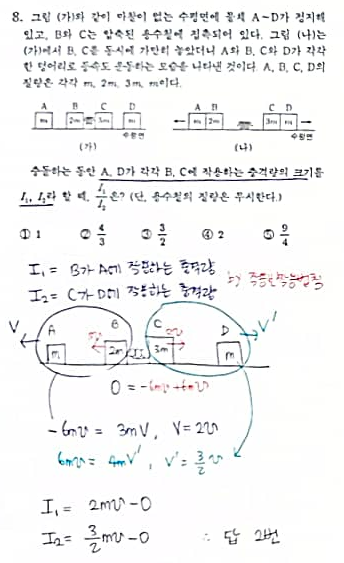 8. 그림 (가)와 같이 마찰이 없는 수평면에 물체 A~D가 정지해
있고, B와 C는 압축된 용수철에 접촉되어 있다. 그림 (나)는
(가)에서 B, C를 동시에 가만히 놓았더니 A와 B, C와 D가 각각
한 덩어리로 등속도 운동하는 모습을 나타낸 것이다. A, B, C, D의
질량은 각각 m, 2m, 3m, m이다.
A B C D A B C D
m 2m 3m m m 2m 3m m
수평면 수평면
(가) (나)
충돌하는 동안 A, D가 각각 B, C에 작용하는 충격량의 크기를
I₁, I₂라 할 때, I₁/I₂은? (단, 용수철의 질량은 무시한다.)
① 1 ② 4/3 ③ 3/2 ④ 2 ⑤ 9/4
I₁ = B가 A에 작용하는 충격량
I₂ = C가 D에 작용하는 충격량
by 작용반작용법칙
V A B C D V'
m 2m 3m 2v m
0 = -6mv + 6mv
-6mv = 3mV, V = 2v
6mv = 4mV', V' = 3/2 v
I₁ = 2mv - 0
I₂ = 3/2 mv - 0 ∴ 답 2번